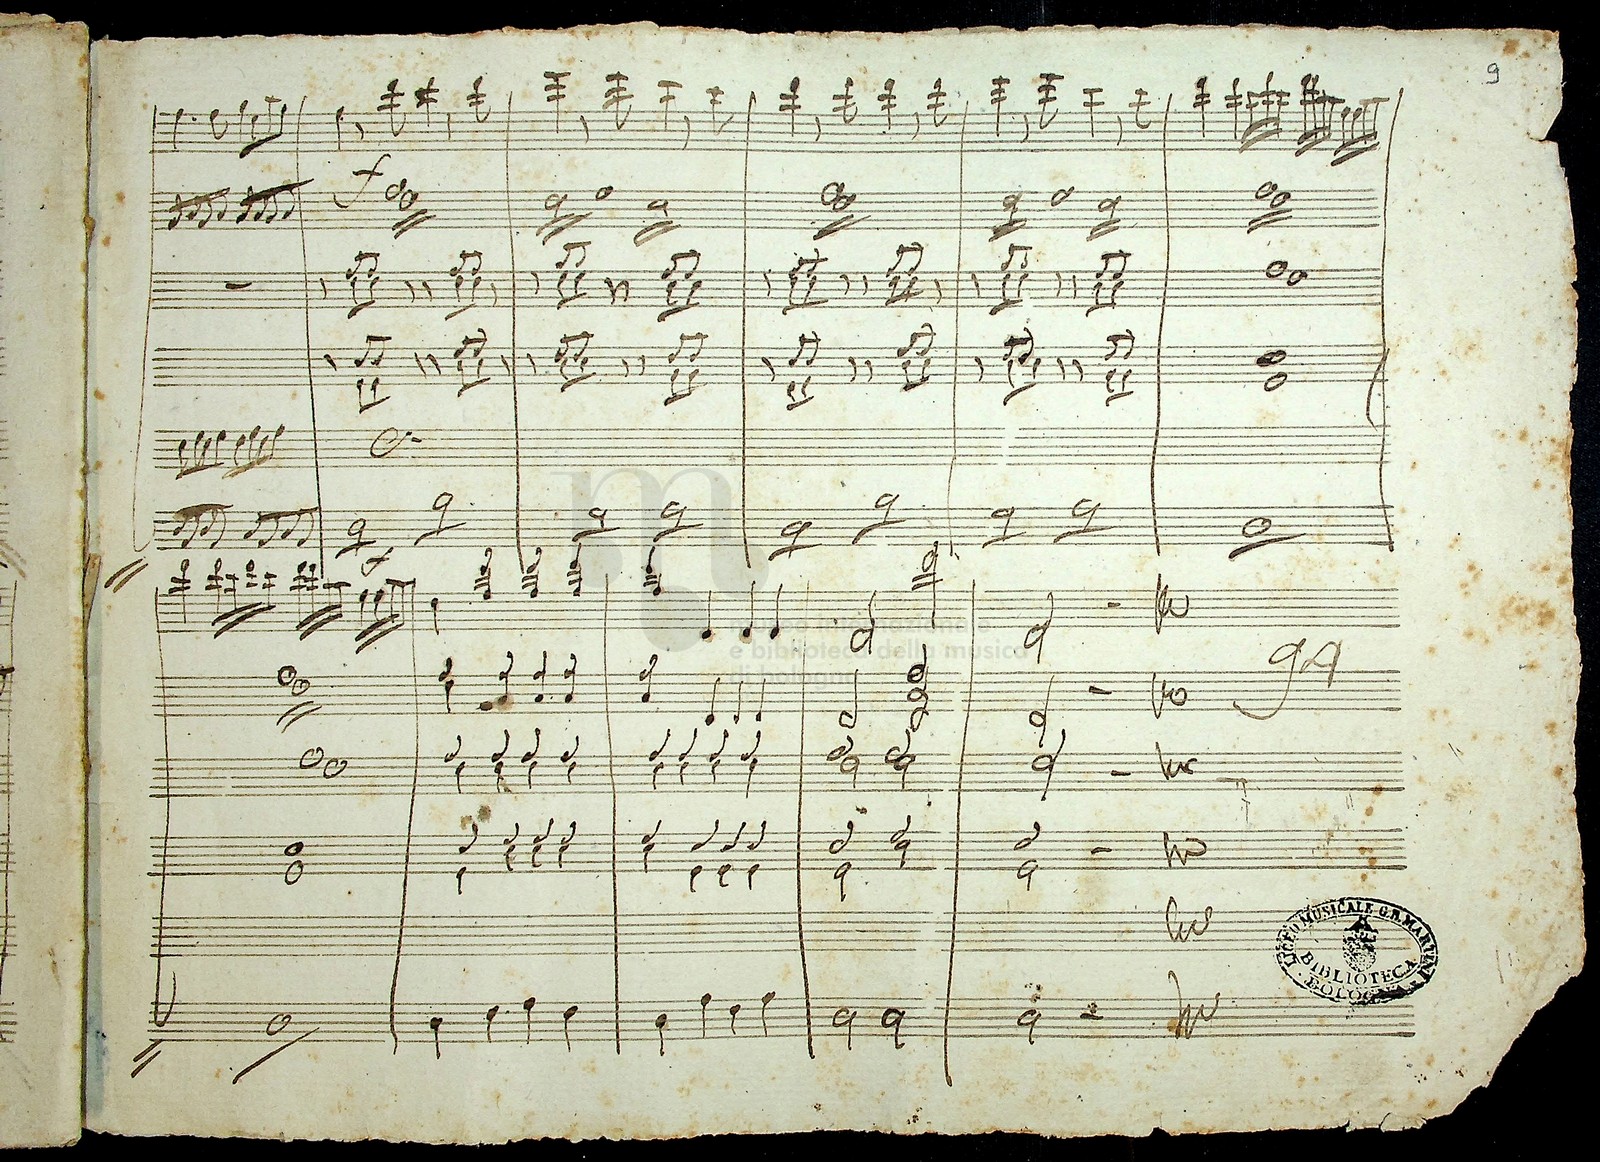 9
f
f
94
museo internazionale
e biblioteca della musica
di bologna
LICEO MUSICALE G.B. MARTINI
BIBLIOTECA
BOLOGNA